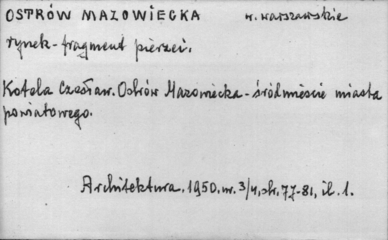 OSTRÓW MAZOWIECKA w. warszawskie
rynek - fragment pierzei.
Kotela Czesław. Ostrów Mazowiecka - śródmieście miasta
powiatowego.
Architektura. 1950. nr. 3/4, str. 77-81, il. 1.